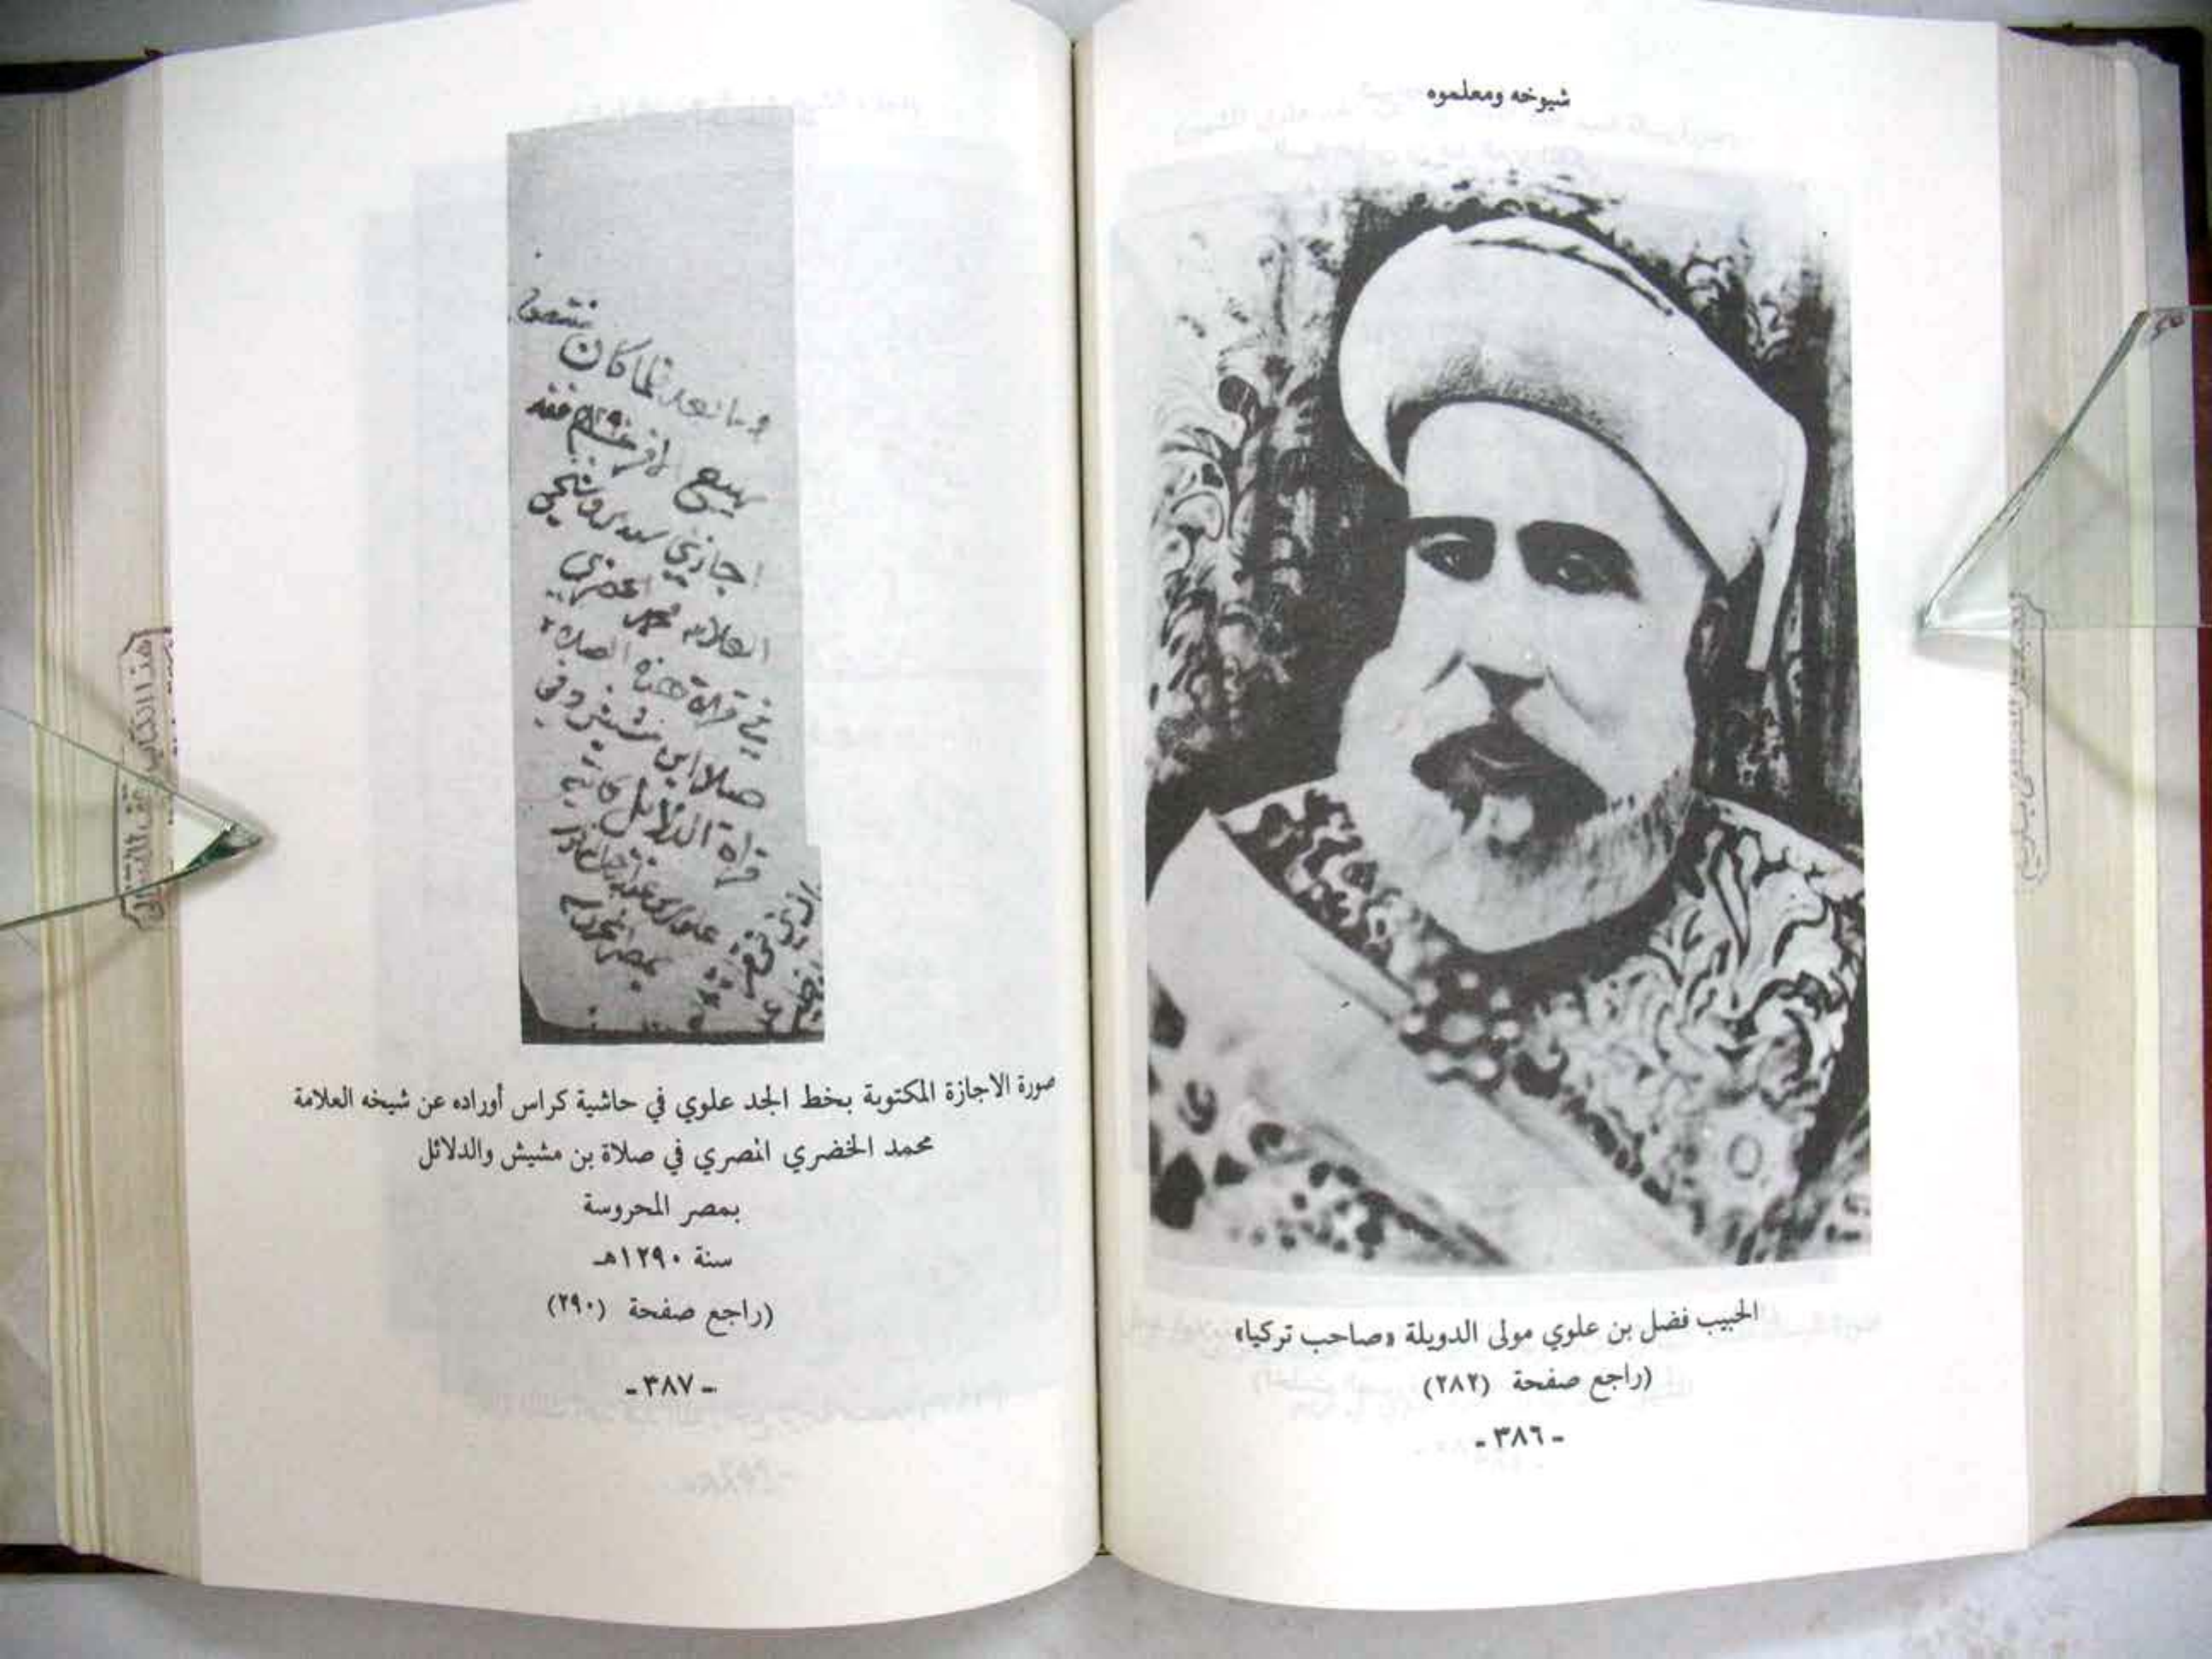 شيوخه ومعلموه
الحبيب فضل بن علوي مولى الدويلة «صاحب تركيا»
(راجع صفحة (٢٨٢)
- ٣٨٦ -
وما بعد لما كان
ربيع الآخر ١٢٩٠ فقد
اجازني سيدي وشيخي
العلامه محمد الخضري
في قراة هذه الصلاة
صلاة ابن مشيش وفي
قراة الدلائل
بمصر المحروسه
صورة الاجازة المكتوبة بخط الجد علوي في حاشية كراس أوراده عن شيخه العلامة
محمد الخضري المصري في صلاة بن مشيش والدلائل
بمصر المحروسة
سنة ١٢٩٠هـ
(راجع صفحة (٢٩٠)
- ٣٨٧ -
هذا الكتاب